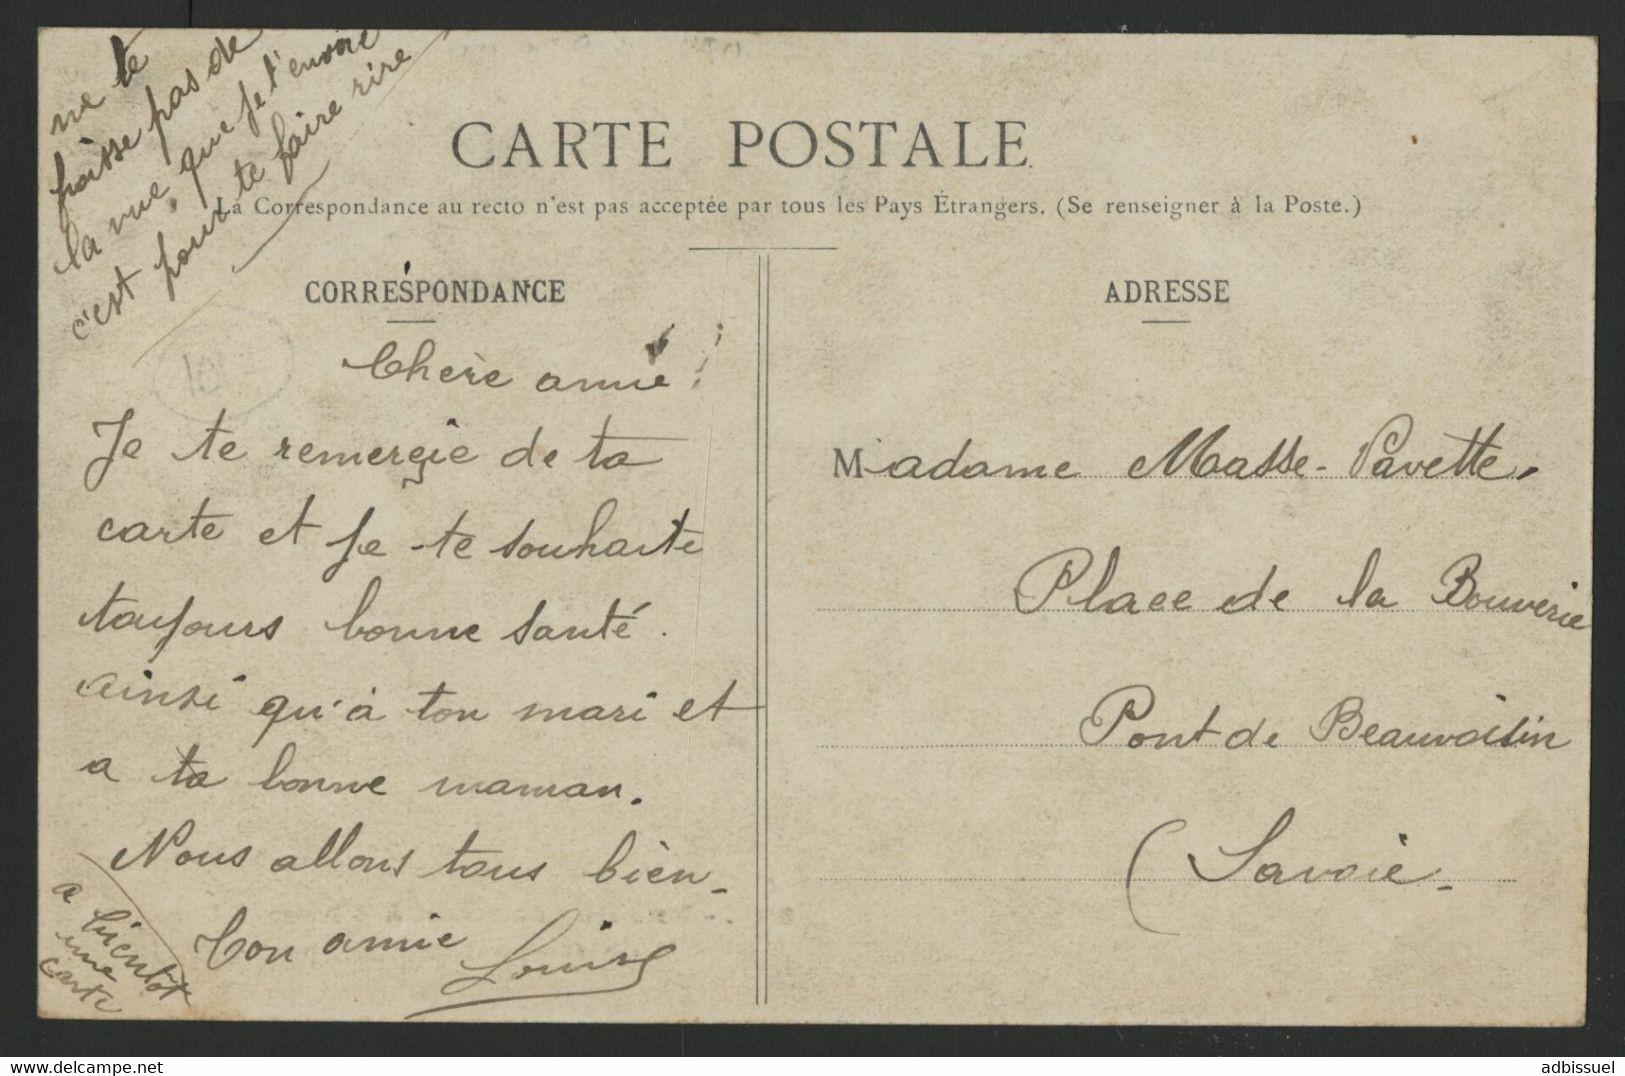 ne te
froisse pas de
la vue que je t'envoie
c'est pour te faire rire
CARTE POSTALE
La Correspondance au recto n'est pas acceptée par tous les Pays Étrangers. (Se renseigner à la Poste.)
CORRESPONDANCE
Chère amie
Je te remergie de ta
carte et je te souhaite
toujours bonne santé.
ainsi qu'à ton mari et
a ta bonne maman.
Nous allons tous bien.
Ton amie Louise
a bientôt
une
carte
ADRESSE
Madame Masse-Pavette.
Place de la Bouverie
Pont de Beauvoisin
(Savoie.
www.delcampe.net
adbissuel